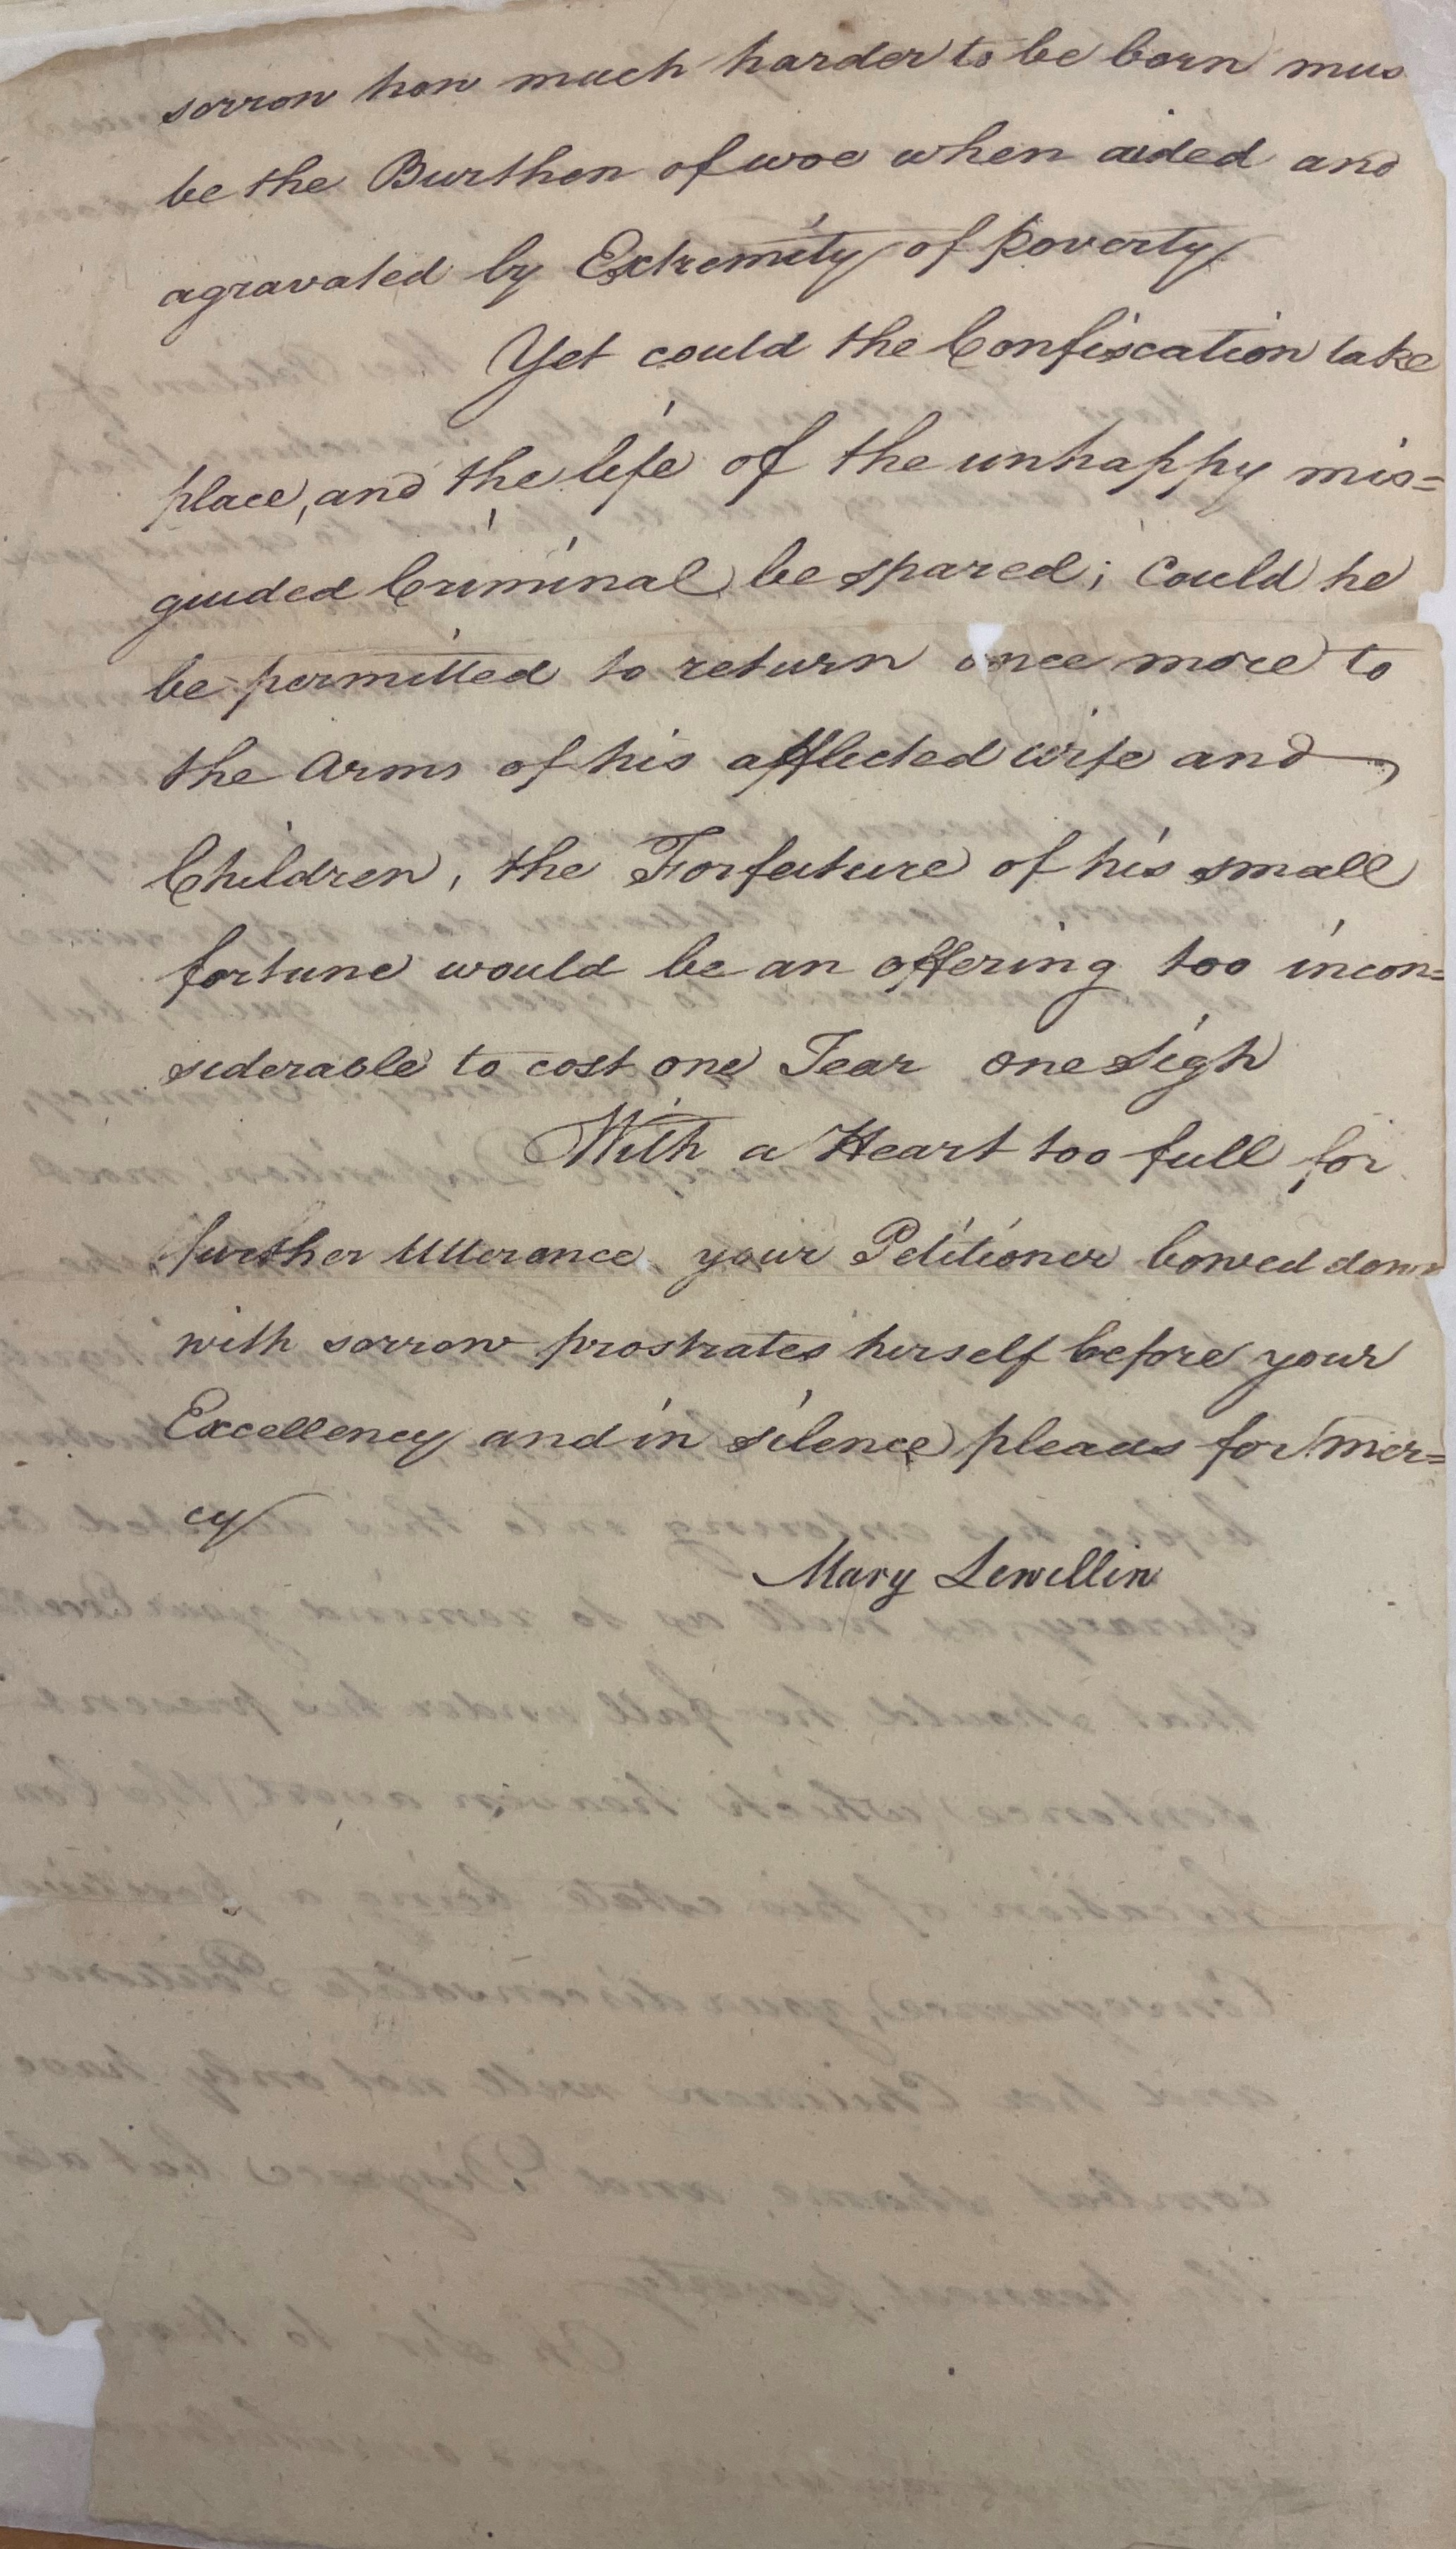 sorrow how much harder to be born mus
be the Burthen of woe when aided and
agravated by Extremity of Poverty
Yet could the Confiscation take
place, and the life of the unhappy mis=
guided Criminal be spared; Could he
be permitted to return once more to
the Arms of his afflicted wife and
Children, the Forfeiture of his small
fortune would be an offering too incon=
siderable to cost one Tear one Sigh
With a Heart too full for
further Utterance your Petitioner bowed down
with sorrow prostrates herself before your
Excellency and in silence pleads for mer=
cy
Mary Lewellin